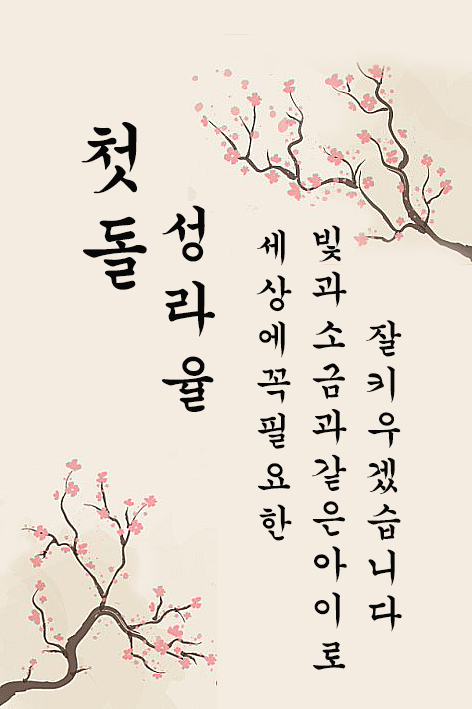 첫돌
성라율
세상에꼭필요한
빛과소금과같은아이로
잘키우겠습니다